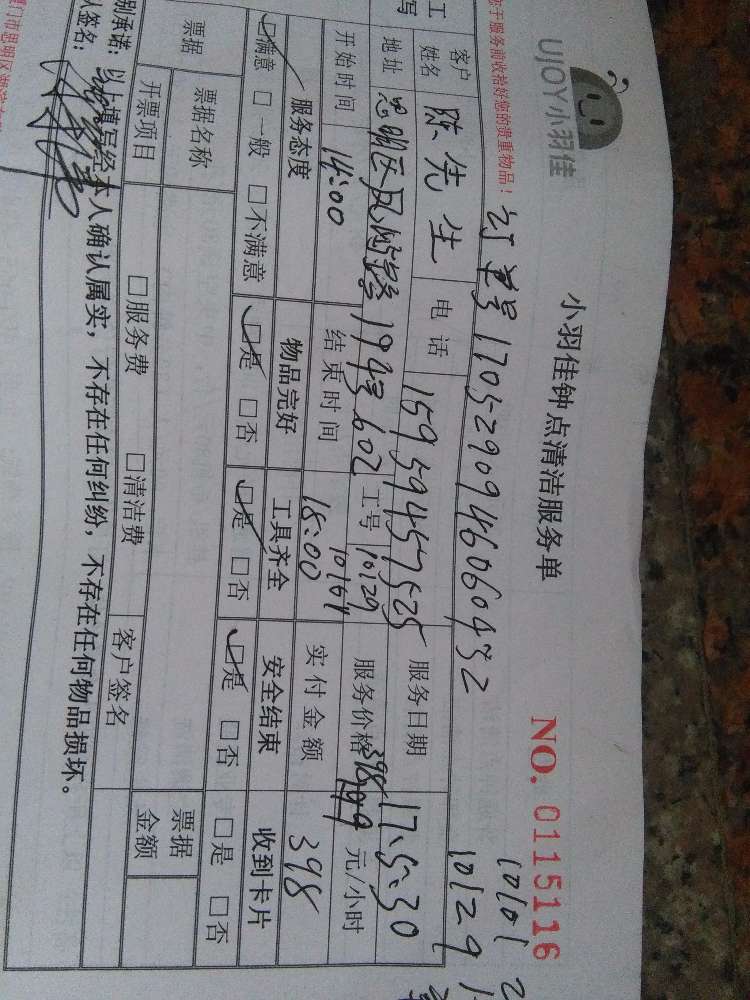 UJOY小羽佳
小羽佳钟点清洁服务单
NO. 0115116
订单号1705290946060432
10129
于服务前收拾好您的贵重物品！
客户姓名 陈先生 电话 15959457525 服务日期 17.5.30
地址 思明区凤屿路194号602 工号 10129 服务价格 398 元/小时
开始时间 14:00 结束时间 18:00 实付金额 398
服务态度 物品完好 工具齐全 安全结束 收到卡片
☑满意 □一般 □不满意 ☑是 □否 ☑是 □否 ☑是 □否 □是 □否
票据 票据名称 □服务费 □清洁费 票据金额
开票项目 客户签名
别承诺：以上填写经本人确认属实，不存在任何纠纷，不存在任何物品损坏。
人签名：